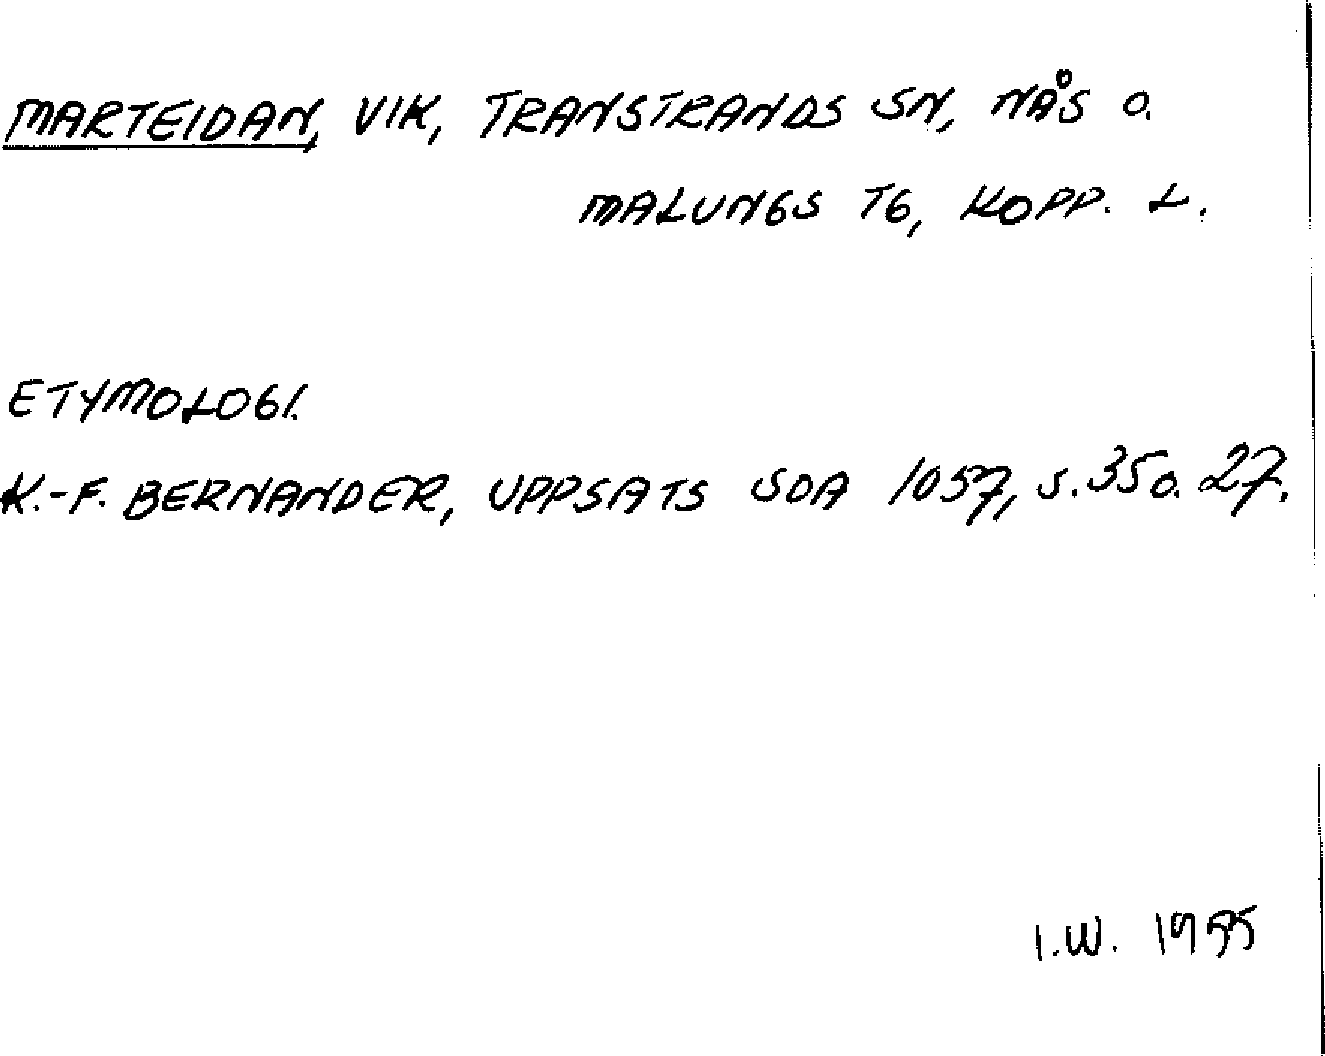 MARTEIDAN, VIK, TRANSTRANDS SN, NÅS O.
MALUNGS TG, KOPP. L.
ETYMOLOGI.
K.-F. BERNANDER, UPPSATS SOA 1057, S. 35 o. 27.
I.W. 1955